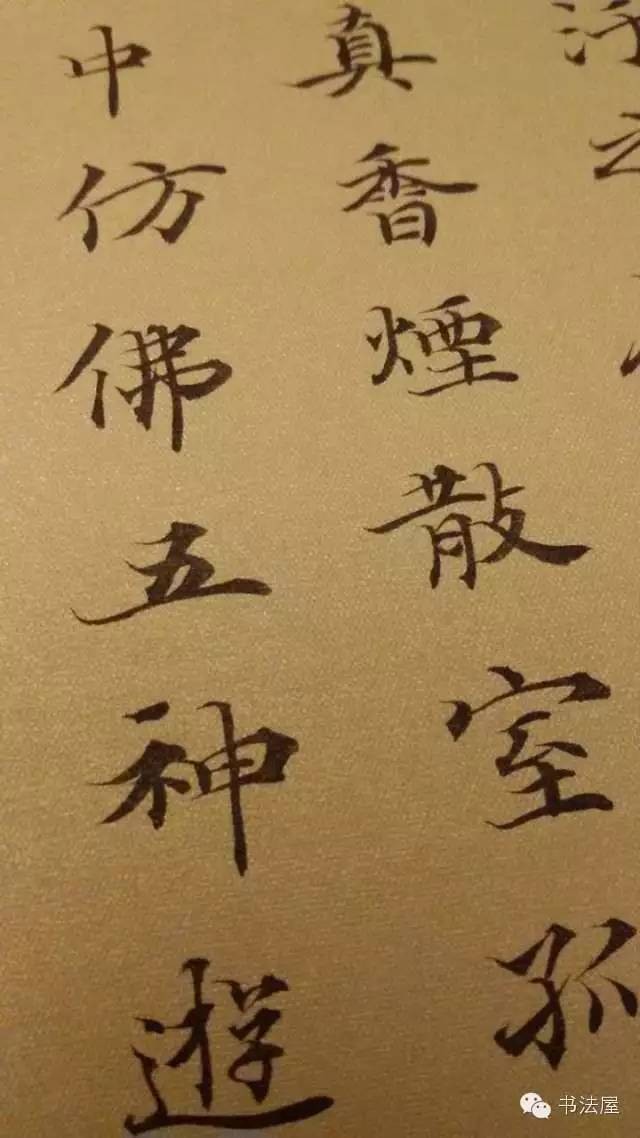 真香煙散室孤
中仿佛五神遊
书法屋